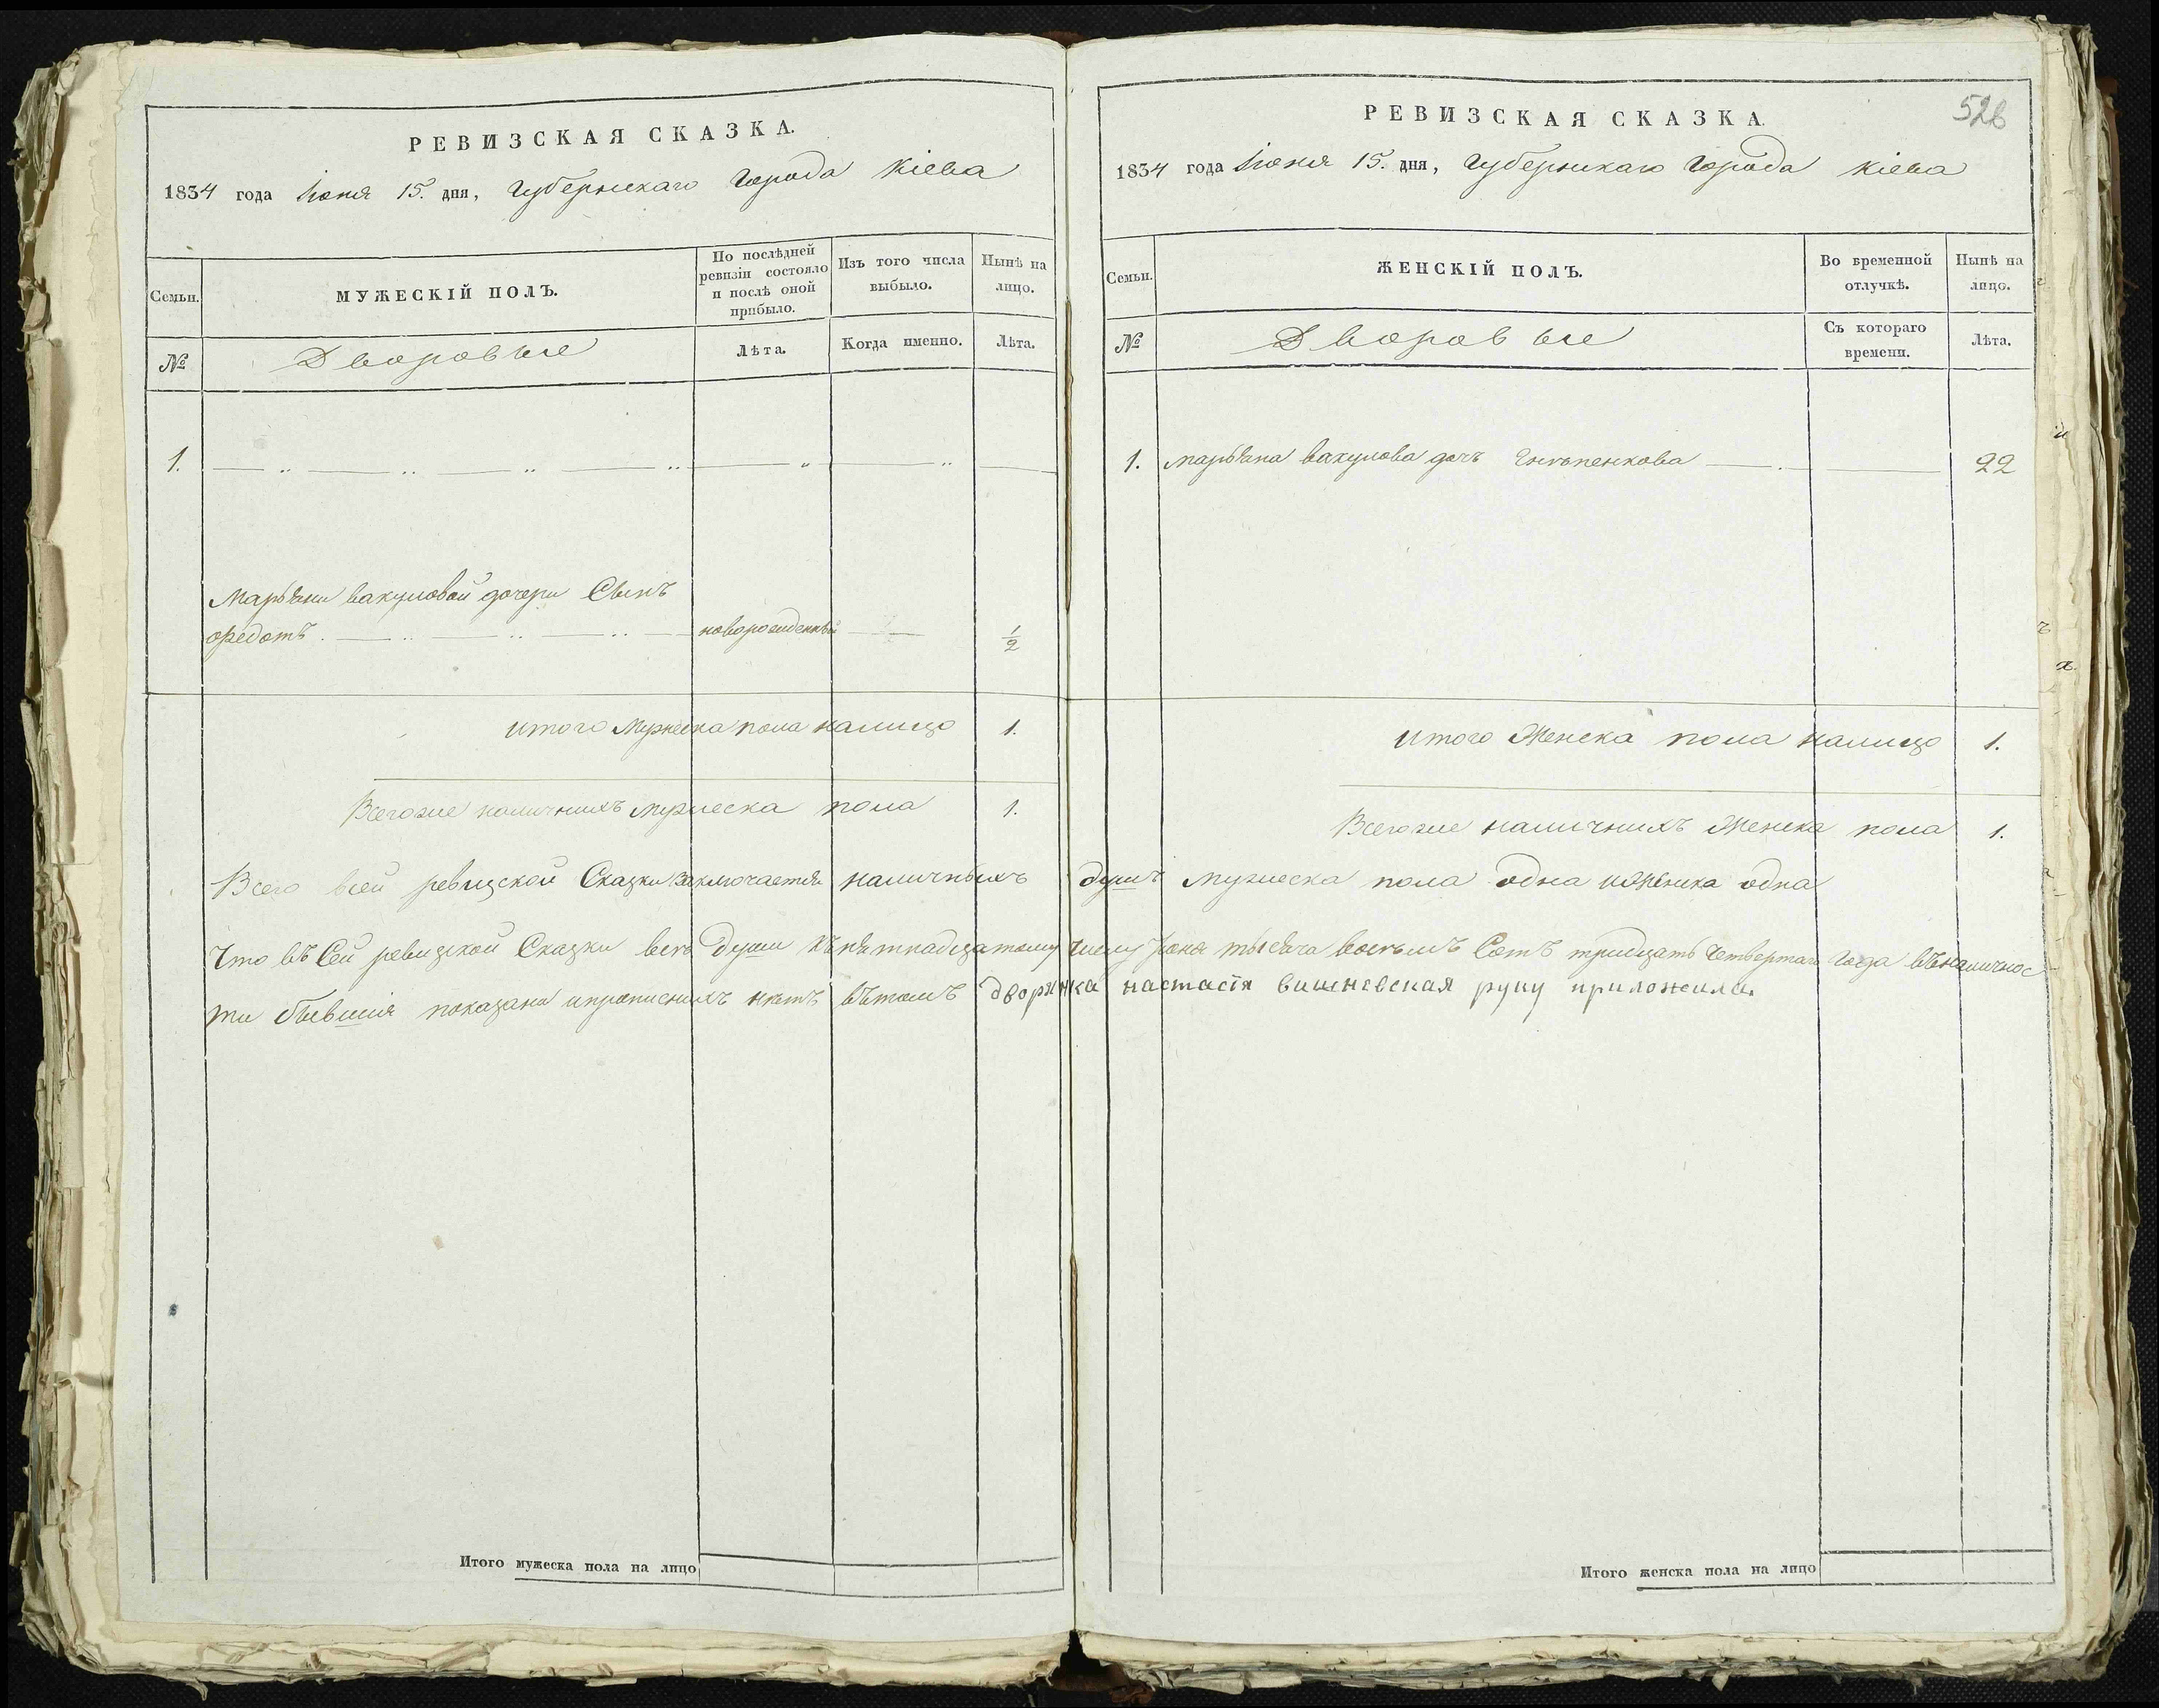 РЕВИЗСКАЯ СКАЗКА.
1834 года Іюня 15. дня, Губернскаго Города Кіева
Семьи.
МУЖЕСКІЙ ПОЛЪ.
По послѣдней ревизіи состояло и послѣ оной прибыло.
Изъ того числа выбыло.
Нынѣ на лицо.
№
Дворовые
Лѣта.
Когда именно.
Лѣта.
1.
Марьяни вакуловой дочери Сынъ
Федотъ новорожденный 1/2
итого Мужеска пола налицо 1.
Всегоже наличнихъ мужеска пола 1.
РЕВИЗСКАЯ СКАЗКА.
526
1834 года Іюня 15. дня, Губернскаго Города Кіева
Семьи.
ЖЕНСКІЙ ПОЛЪ.
Во временной отлучкѣ.
Нынѣ на лицо.
№
Дворовые
Съ котораго времени.
Лѣта.
1. Марьяна вакулова дочь 22
итого Женска пола налицо 1.
Всегоже наличнихъ Женска пола 1.
Всего всей ревизской Сказки Заключается наличныхъ душъ мужеска пола одна иженска одна
Что въ Сей ревизской Сказки всѣ души къ пятнадцатому числу Іюня тысяча восемъ Сотъ тридцать Четвертаго Года въналичнос
ти бывшія показани ипрописнихъ нетъ вътомъ дворянка настасія вишневская руку приложила.
Итого мужеска пола на лицо
Итого женска пола на лицо